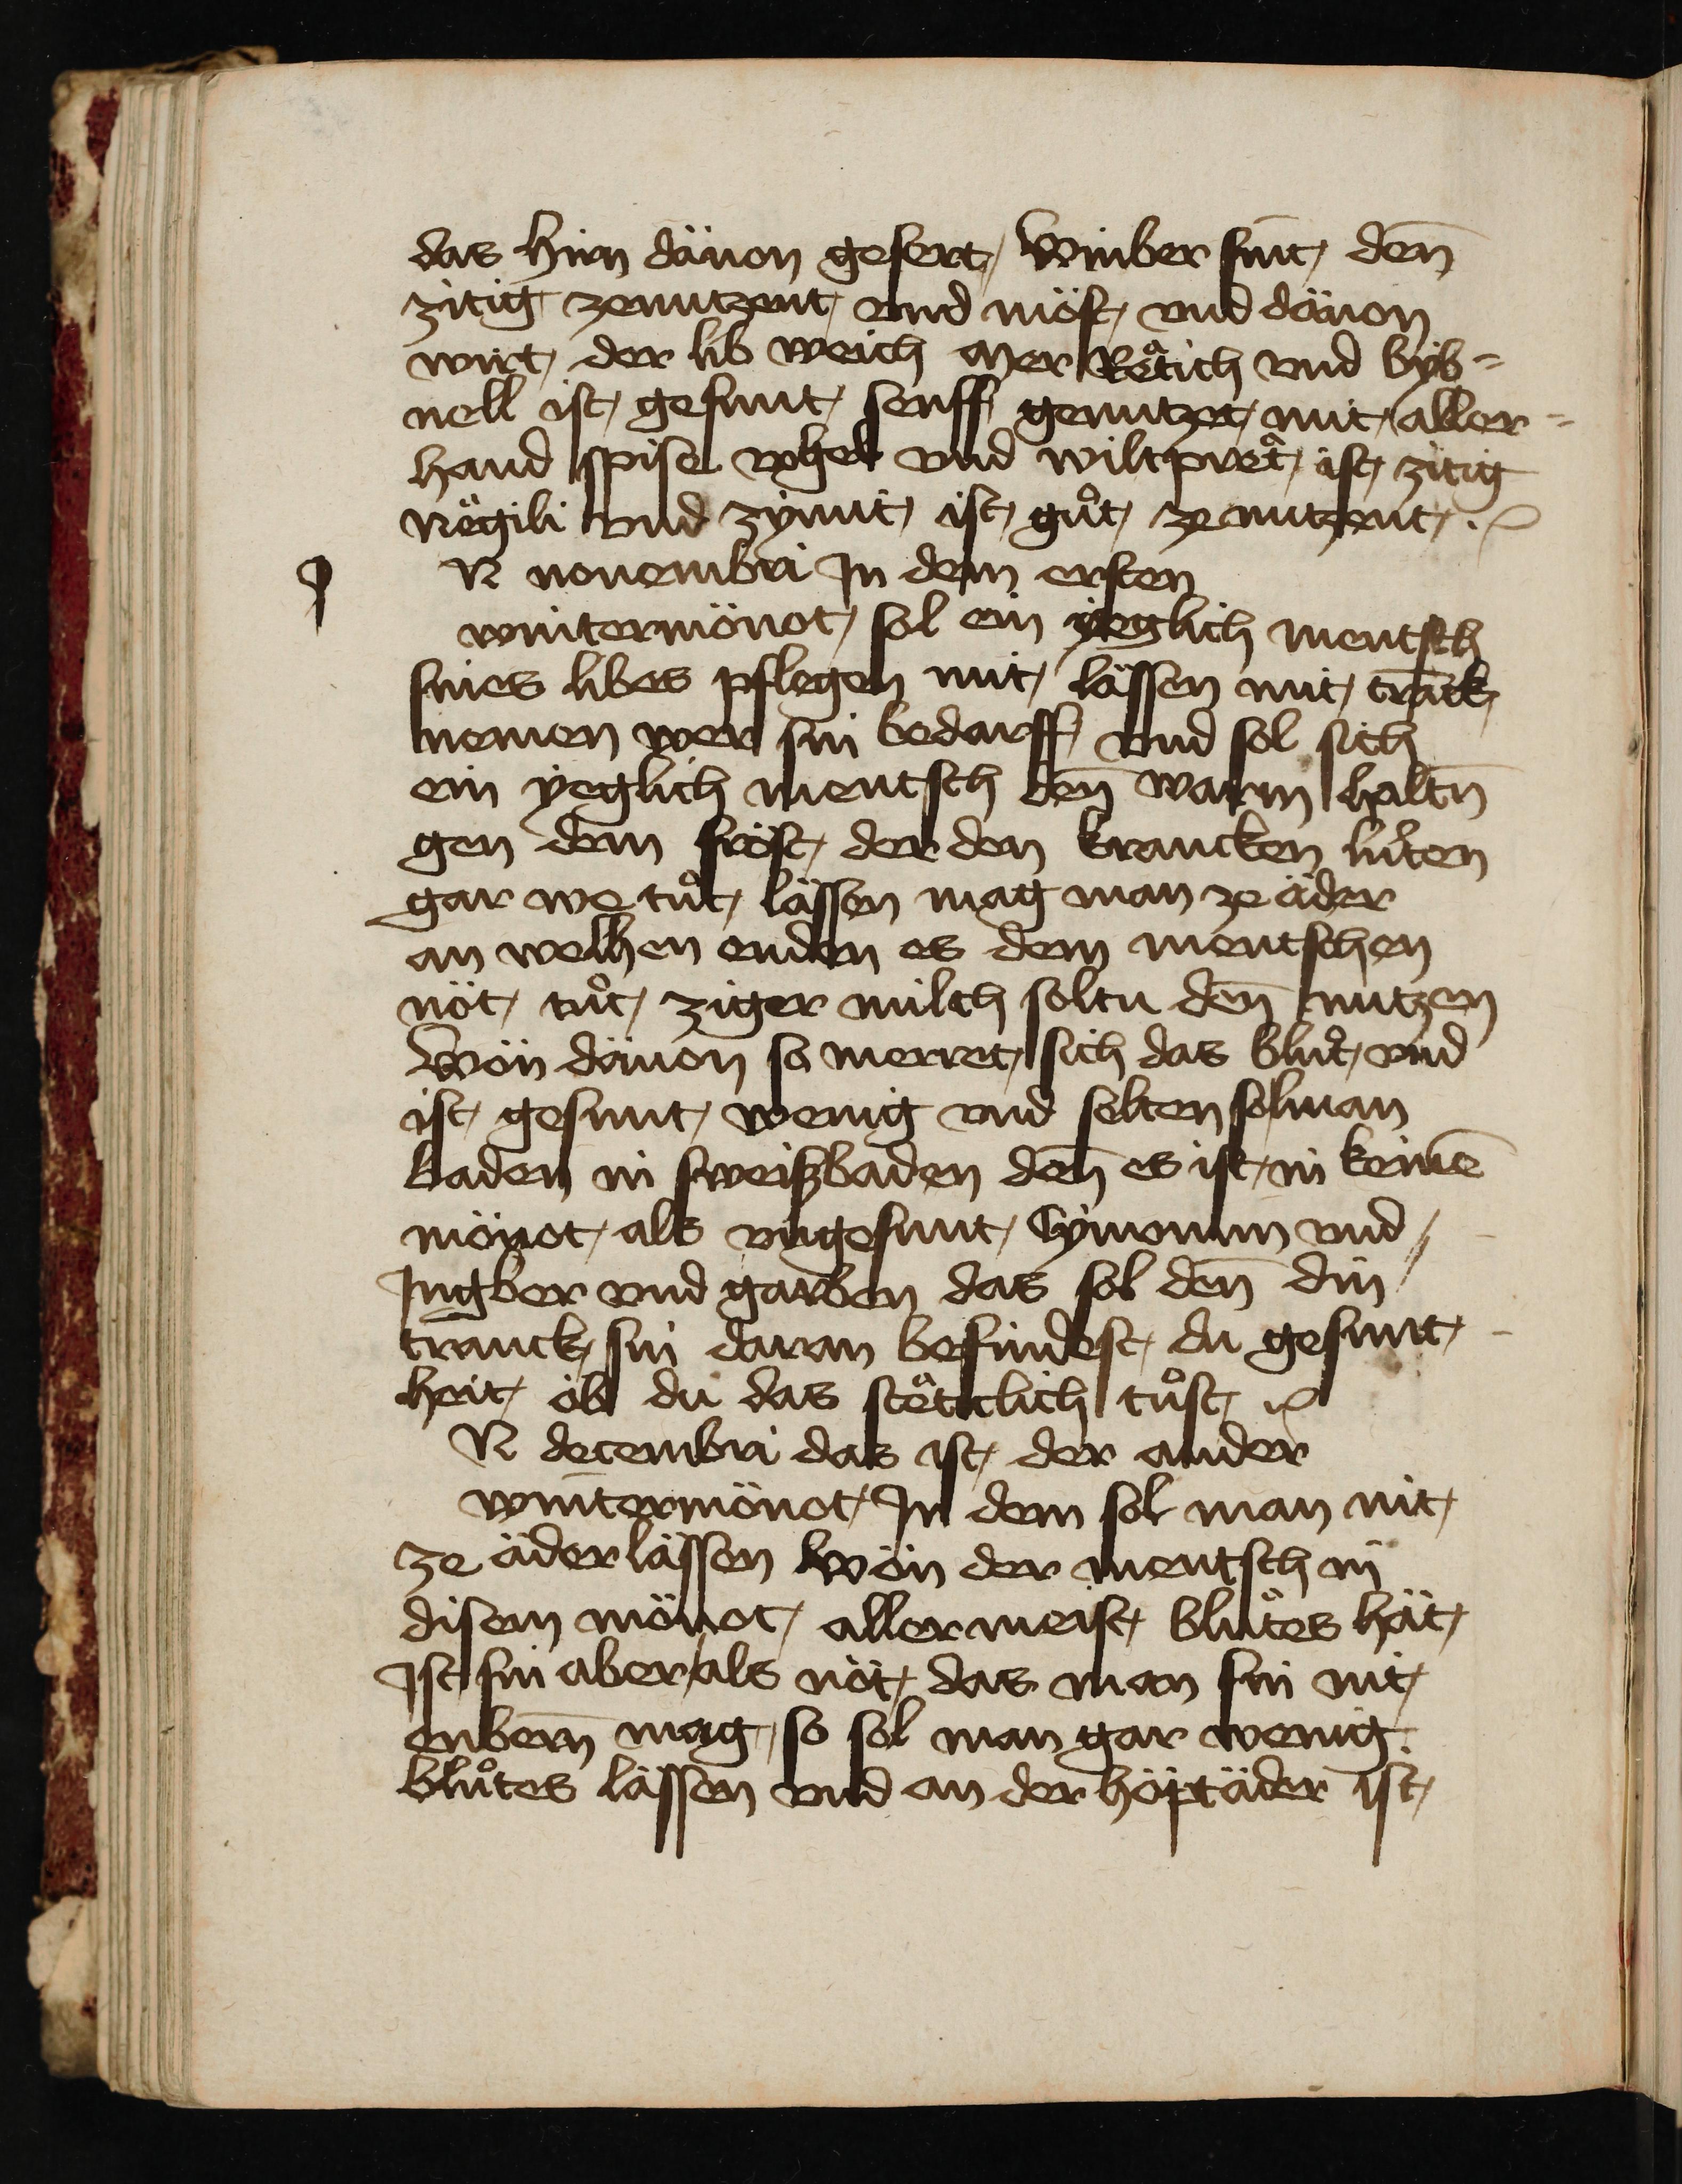 das hirn dävon gesert / Winber sint / den̄
zitig zenutzent / vnd möst / vnd dävon
wirt / der lib weich Mer Rͤatich vnd byb=
nell ist / gesunt / senff genutzet / mit / aller=
hand spise vogel vnd wiltprͤat / ist / zitig
Nͤagili vnd zymit / ist / guͦt / ze nutzent / .
N nouembri Jn dem ersten
wintermönot / sol ein yeglich mentsch
sines libes pflegen mit / lässen mit / tranck
nemen wer sin bedarff / vnd sol sich
ein yeglich mentsch den̄ warm haltn̄
gen dem fröst / der den krancken lüten
gar we tuͦt / lässen mag man ze äder
an welhen enden es dem mentschen
nöt / tuͦt / ziger milch soltu den̄ nutzen
Wön dävon so merret / sich das bluͦt / vnd
ist / gesunt / wenig vnd selten sol man
baden in sweiszbaden den̄ es ist / in keinē
mönot / als vngesunt / Cymonim vnd /
Jngber vnd garben das sol den̄ din /
tranck sin daran befindest / du gesunt /
heit / öb du das stͤattlich tuͦst /
N decembri das ist / der ander
wintermönot / Jn dem sol man nit /
ze äder lässen Wön der mentsch in
disem mönot / aller meist / bluͦtes hät /
Jst / sin aber / als nöt / das man sin nit /
enbern̄ mag / so sol man gar wenig
bluͦtes lässen vnd an der höptäder ist /